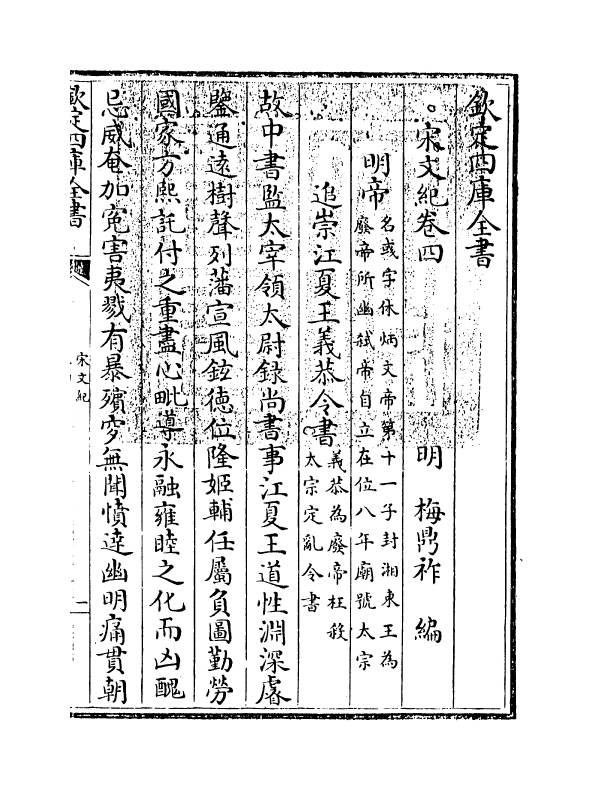 欽定四庫全書
宋文紀卷四
明 梅鼎祚 編
明帝 名彧字休炳文帝第十一子封湘東王為
廢帝所幽弑帝自立在位八年廟號太宗
追崇江夏王義恭令書 義恭為廢帝枉殺
太宗定亂令書
故中書監太宰領太尉錄尚書事江夏王道性淵深睿
鑒通遠樹聲列藩宣風鉉德位隆姬輔任屬負圖勤勞
國家方熙託付之重盡心毗導永融雍睦之化而凶醜
忌威奄加寃害夷戮有暴殯穸無聞憤達幽明痛貫朝
欽定四庫全書
宋文紀